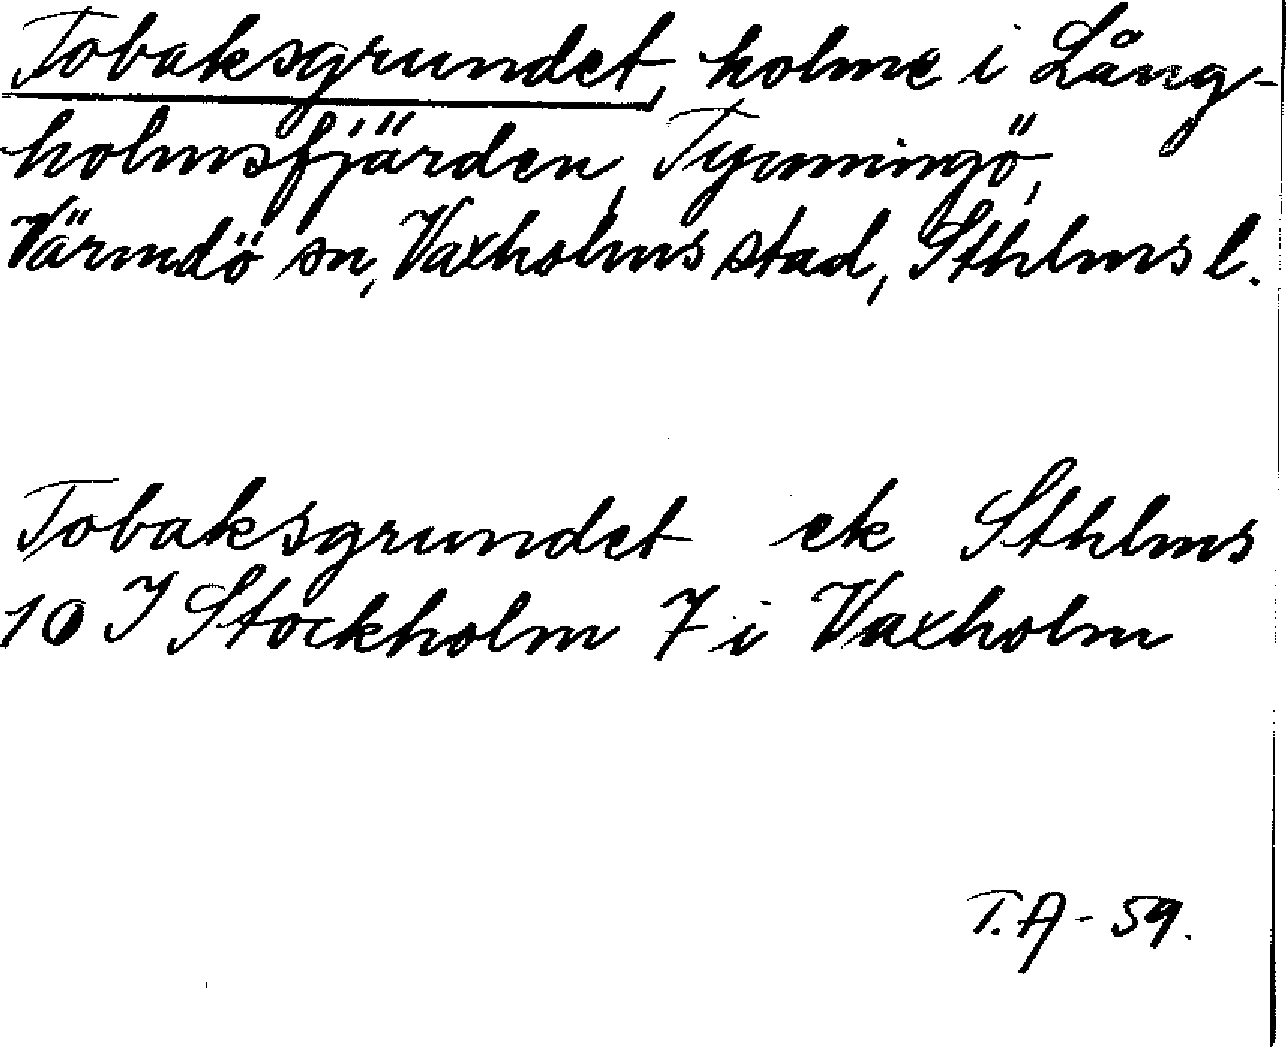 Tobaksgrundet, holme i Lång-
holmsfjärden, Tynningö,
Värmdö sn, Vaxholms stad, Sthlms l.
Tobaksgrundet ek Sthlms
10 J Stockholm 7 i Vaxholm
T.A - 59.